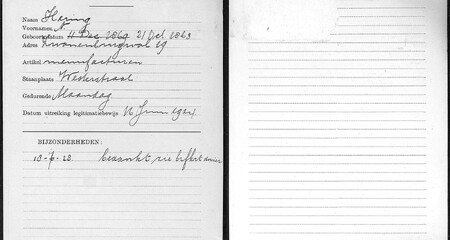 Naam Hering
Voornamen N.
Geboortedatum 4 Dec 1869 21 Oct 1863
Adres Zwanenburgwal 19
Artikel manufacturen
Standplaats Westerstraat
Gedurende Maandag
Datum uitreiking legitimatiebewijs 16 Juni 1924
BIJZONDERHEDEN:
10-6-28 bedankt zie